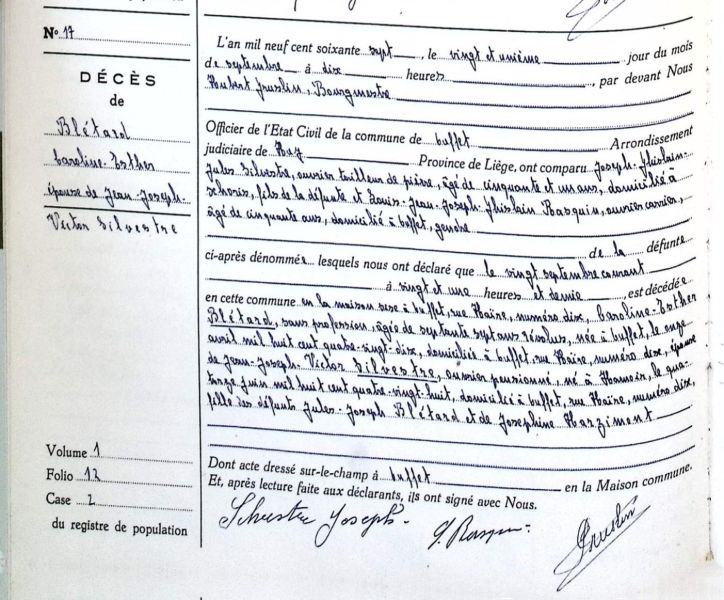 N° 17
DÉCÈS
de
Blétard
Caroline-Esther
épouse de Jean-Joseph-
Victor Silvestre
Volume 1
Folio 12
Case 2
du registre de population
L'an mil neuf cent soixante sept, le vingt et unième jour du mois
de septembre à dix heures, par devant Nous
Hubert, Bourgmestre
Officier de l'Etat Civil de la commune de Buffet Arrondissement
judiciaire de Huy Province de Liège, ont comparu Joseph-Ghislain-
Jules Silvestre, ouvrier tailleur de pierre, âgé de cinquante et un ans, domicilié à
fils de la défunte et Louis-Jean-Joseph-Ghislain Rasquin, ouvrier carrier,
âgé de cinquante ans, domicilié à Buffet, gendre
de la défunte
ci-après dénommée lesquels nous ont déclaré que le vingt septembre courant
à vingt et une heures et demie, est décédée
en cette commune en la maison sise à Buffet, rue Haire, numéro dix, Caroline-Esther
Blétard, sans profession, âgée de septante sept ans révolus, née à Buffet, le onze
avril mil huit cent quatre-vingt-dix, domiciliée à Buffet, rue Haire, numéro dix, épouse
de Jean-Joseph-Victor Silvestre, ouvrier pensionné, né à Hamoir, le qua-
torze juin mil huit cent quatre-vingt-huit, domicilié à Buffet, rue Haire, numéro dix,
fille des défunts Jules-Joseph Blétard et de Josephine Harzimont
Dont acte dressé sur-le-champ à Buffet en la Maison commune.
Et, après lecture faite aux déclarants, ils ont signé avec Nous.
Joseph